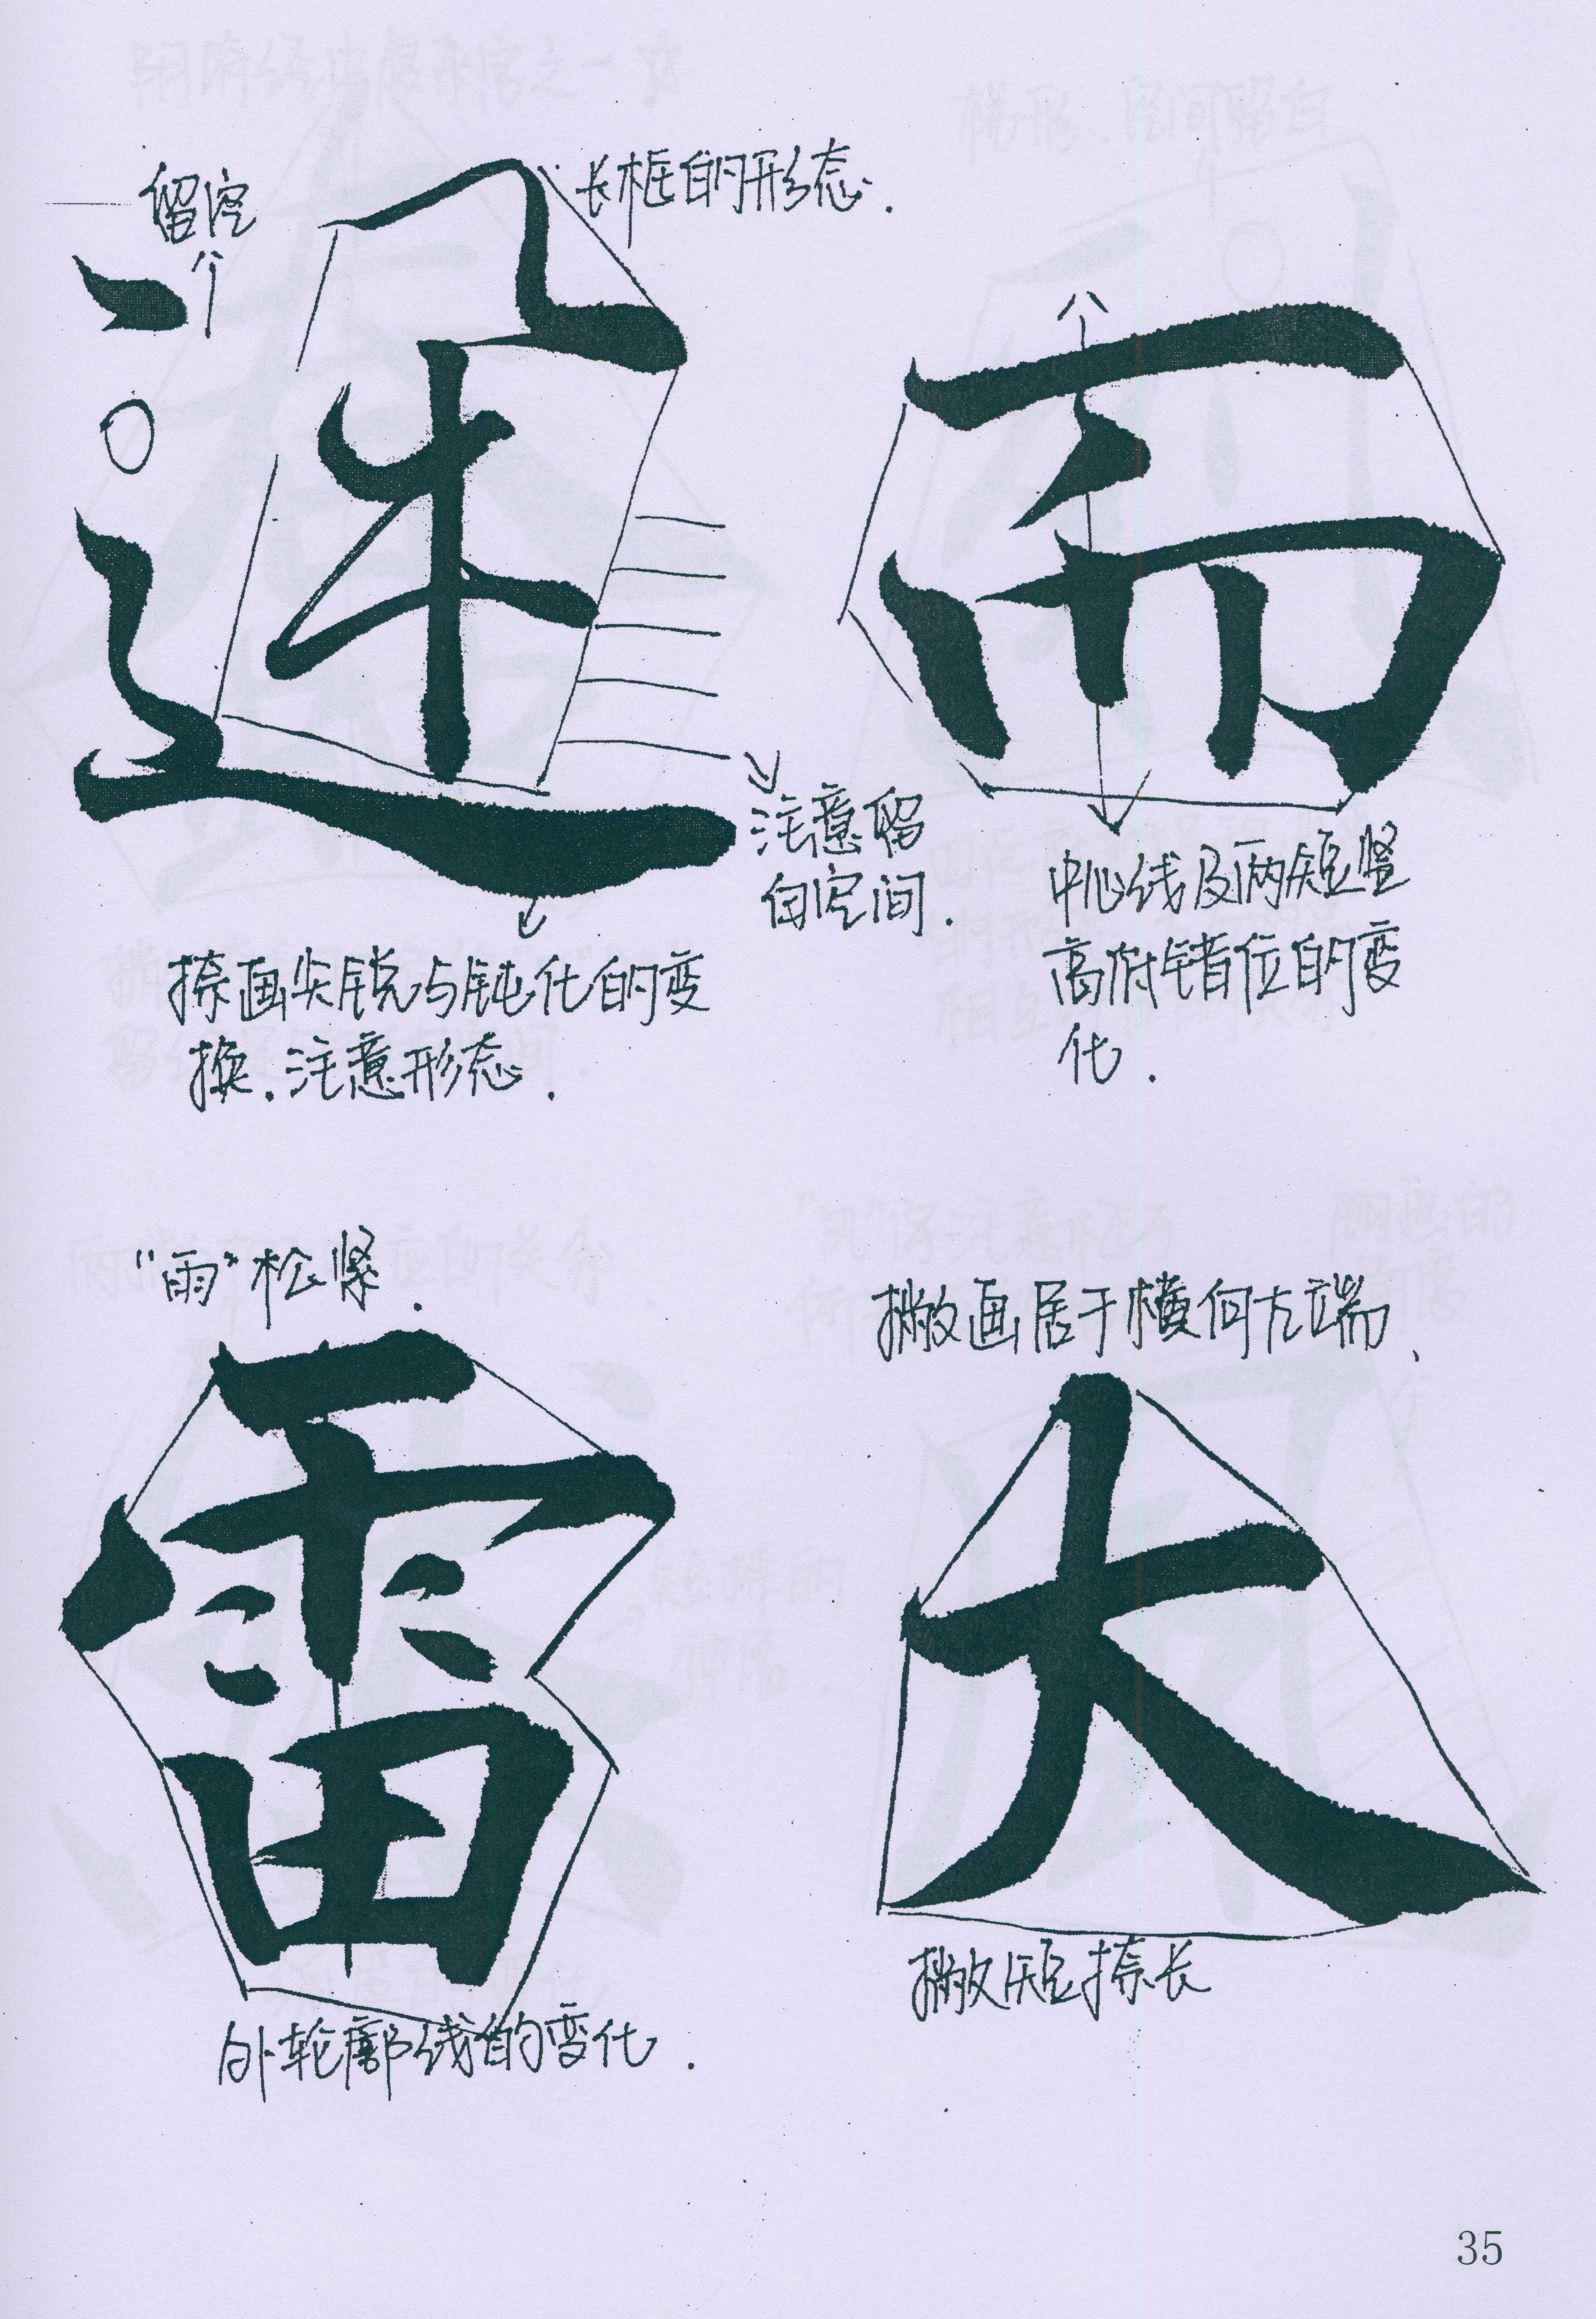 留空
长框的形态.
迅
而
注意留
白空间.
捺画尖锐与钝化的变
换.注意形态.
中心线及两短竖
高低错位的变
化.
"雨"松紧.
雷
外轮廓线的变化.
撇画居于横向左端、
大
撇短捺长
35